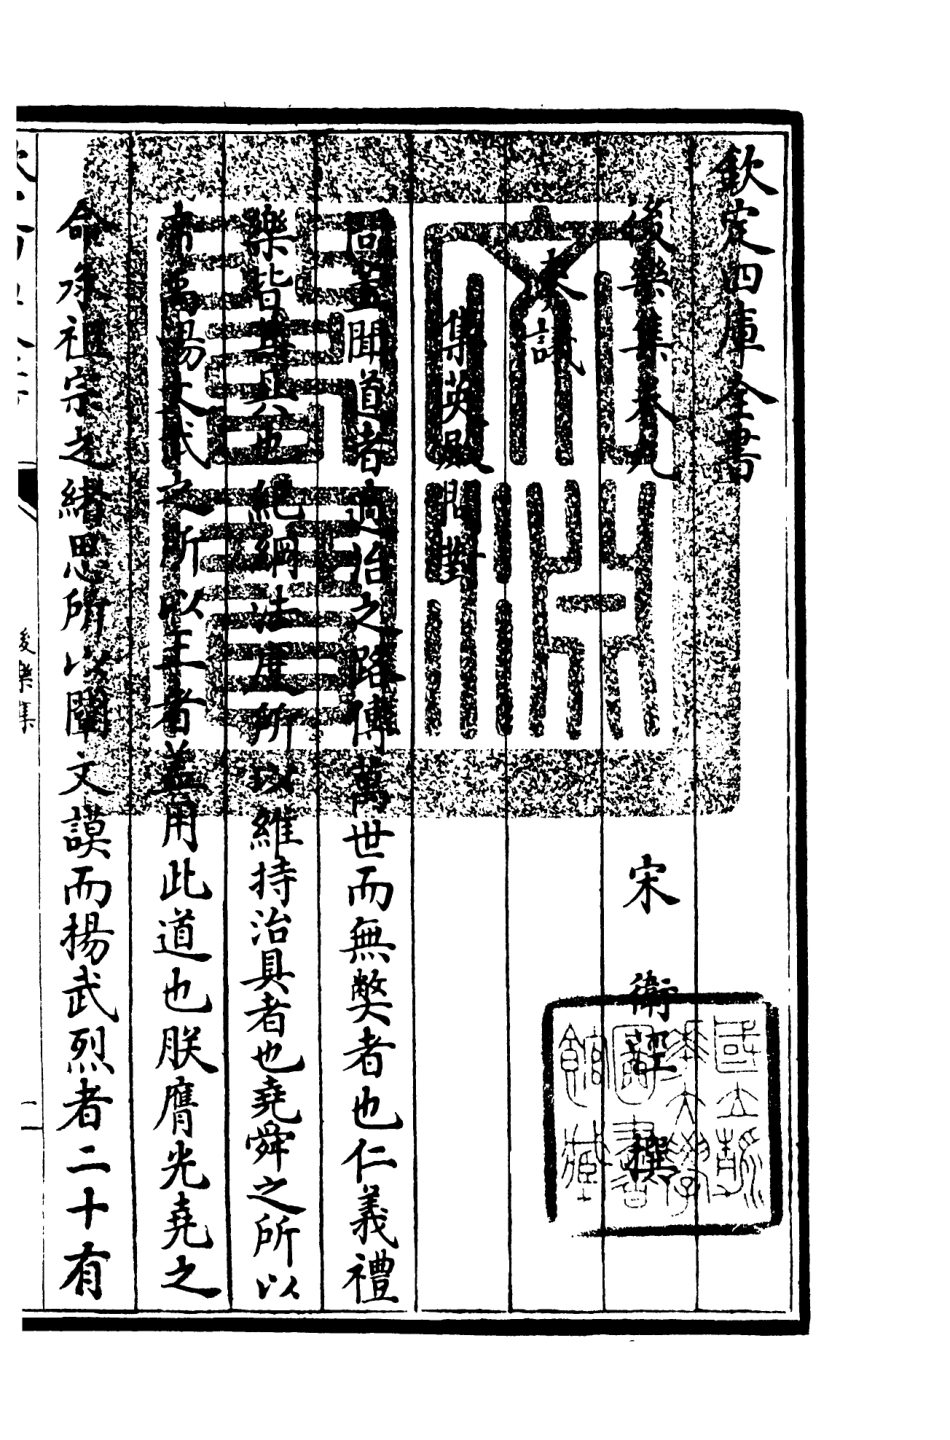 欽定四庫全書
後樂集卷九
宋 衛涇 撰
奏議
集英殿問對
問蓋聞道者適治之路傳萬世而無弊者也仁義禮
樂皆其具也紀綱法度所以維持治具者也堯舜之所以
帝禹湯文武之所以王者蓋用此道也朕膺光堯之
命承祖宗之緒思所以闡文謨而揚武烈者二十有
後樂集
國立浙江大學
圖書館藏